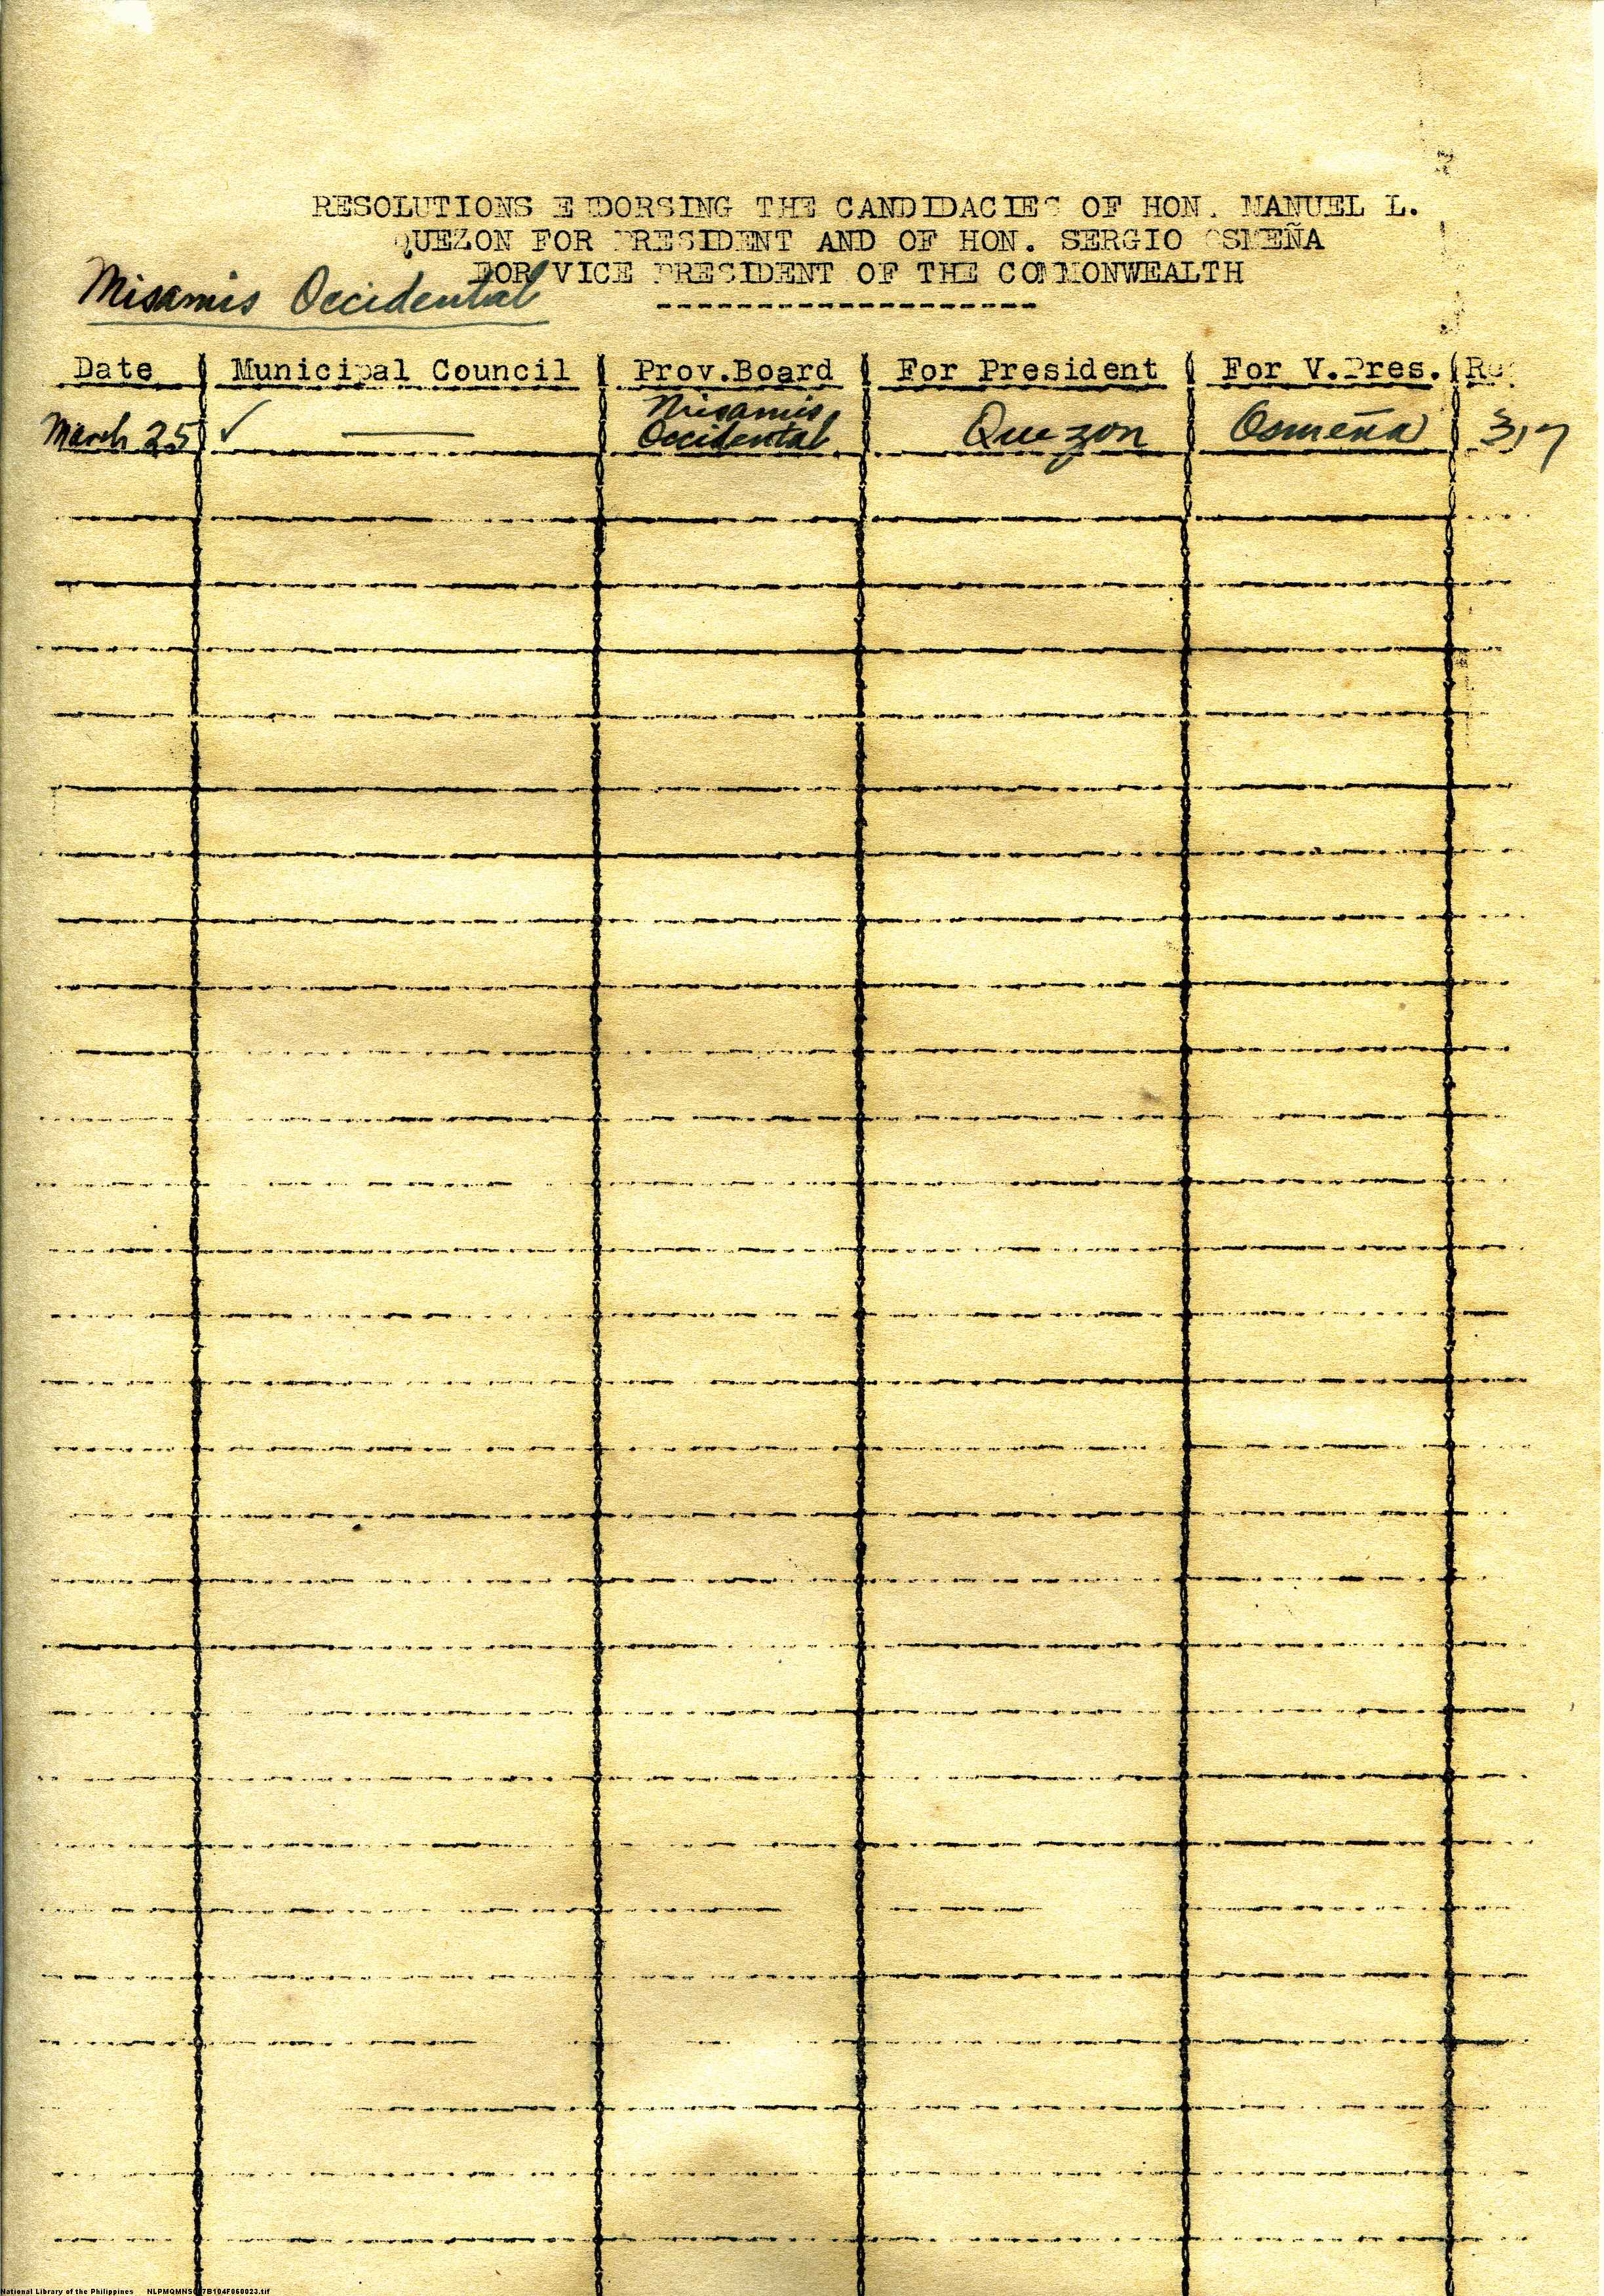 RESOLUTIONS ENDORSING THE CANDIDACIES OF HON. MANUEL L.
QUEZON FOR PRESIDENT AND OF HON. SERGIO OSMEÑA
FOR VICE PRESIDENT OF THE COMMONWEALTH
Misamis Occidental
Date Municipal Council Prov.Board For President For V.Pres.
March 25 ✓ — Misamis Occidental Quezon Osmeña
National Library of the Philippines